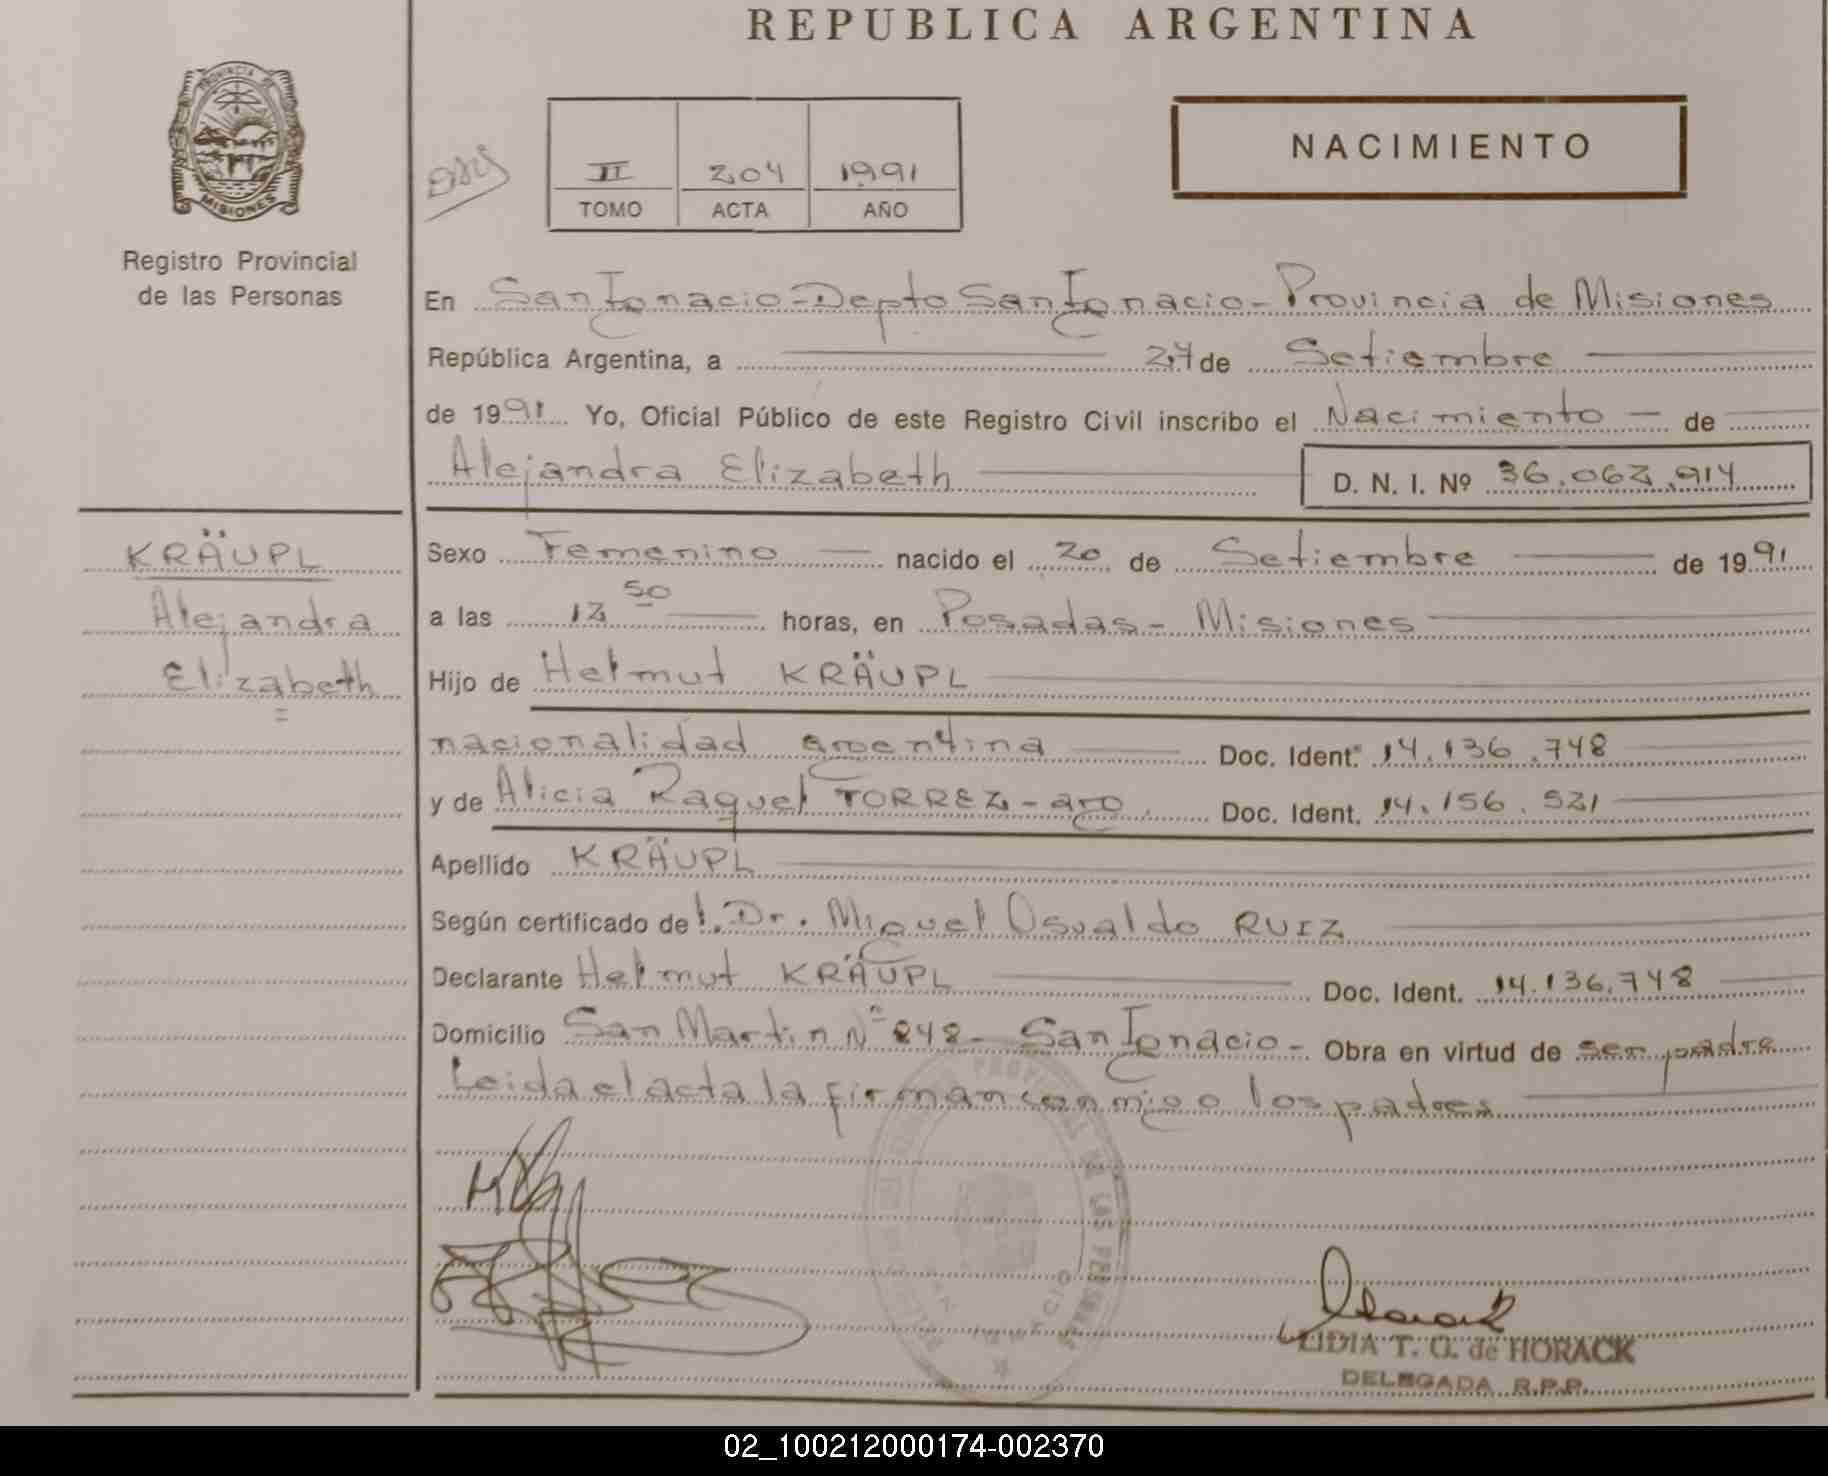 REPUBLICA ARGENTINA
PROVINCIA DE
MISIONES
Registro Provincial
de las Personas
II 204 1991
TOMO ACTA AÑO
NACIMIENTO
En San Ignacio - Depto San Ignacio - Provincia de Misiones
República Argentina, a 24 de Setiembre
de 1991 Yo, Oficial Público de este Registro Civil inscribo el Nacimiento de
Alejandra Elizabeth D. N. I. Nº 36.062.914
KRÄUPL
Alejandra
Elizabeth
Sexo Femenino nacido el 20 de Setiembre de 1991
a las 12 50 horas, en Posadas - Misiones
Hijo de Helmut KRÄUPL
nacionalidad argentina Doc. Ident. 14.136.748
y de Alicia Raquel TORREZ - arg. Doc. Ident. 14.156.521
Apellido KRÄUPL
Según certificado de l. Dr. Miguel Osvaldo RUIZ
Declarante Helmut KRÄUPL Doc. Ident. 14.136.748
Domicilio San Martin Nº 848 - San Ignacio - Obra en virtud de ser padre
Leida el acta la firman conmigo los padres
LIDIA T. O. de HORACK
DELEGADA R.P.P.
02_100212000174-002370